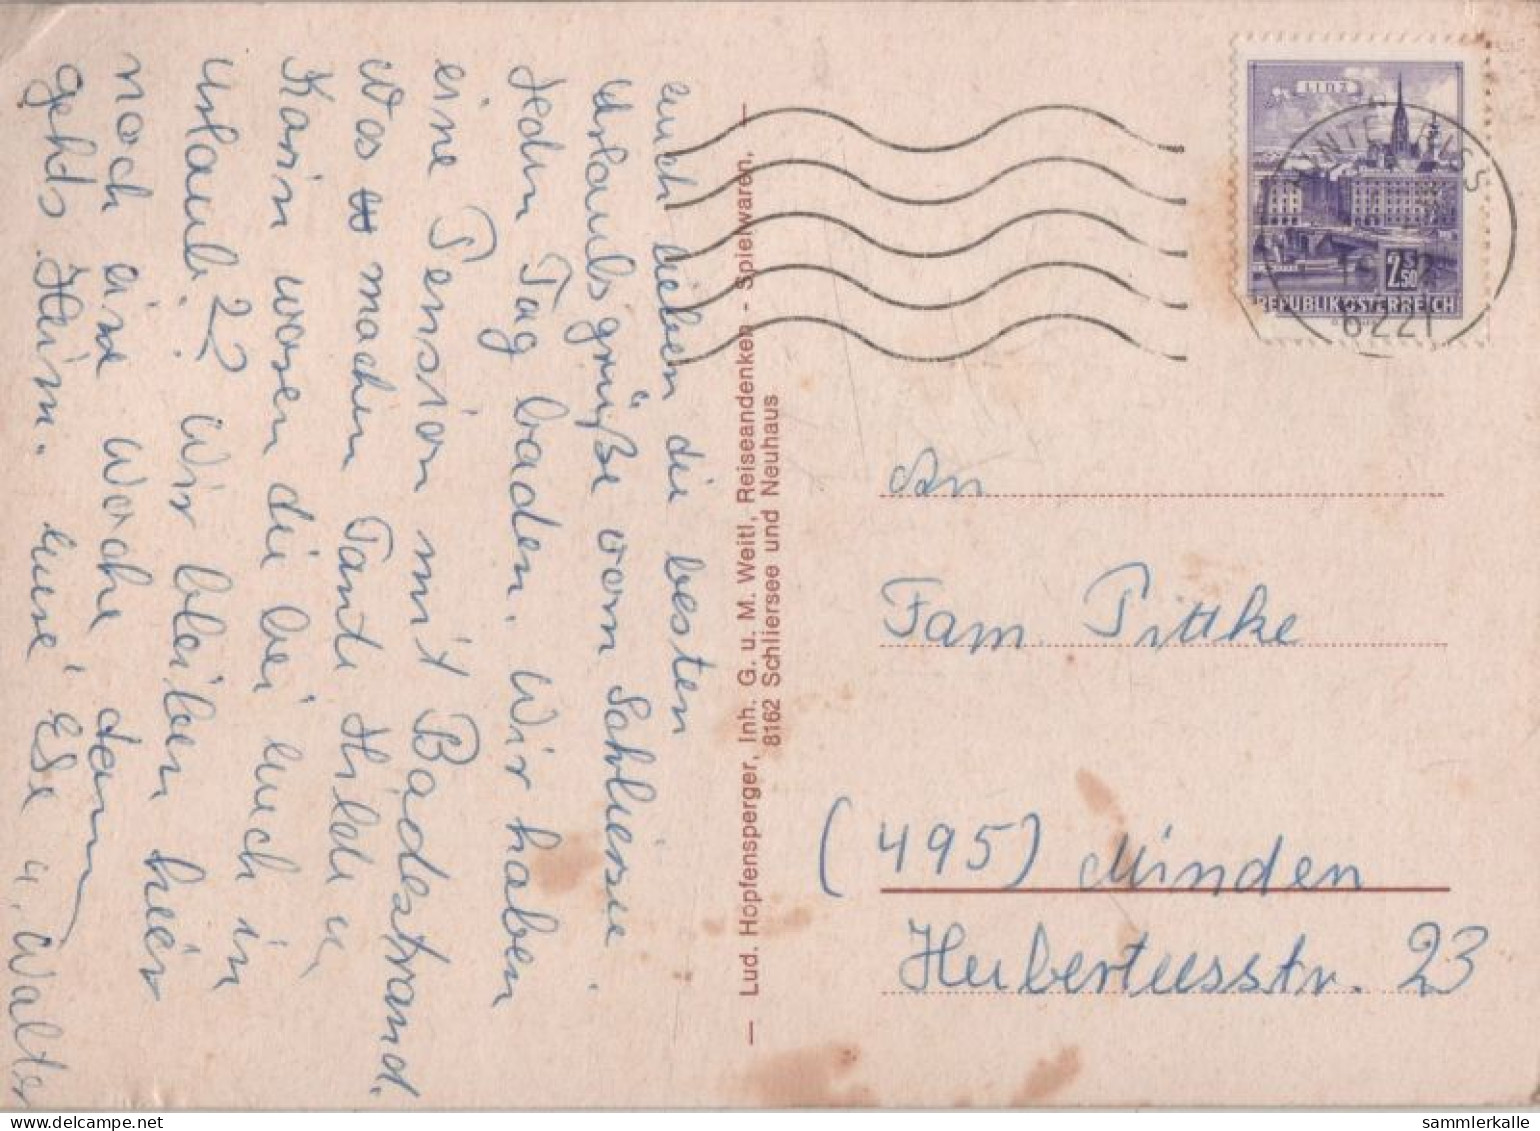 euch lieben die besten
Urlaubsgrüße vom Schliersee.
Jeden Tag baden. Wir haben
eine Pension mit Badestrand.
Was machen Tante Hilde u
Karin waren die bei euch in
Urlaub?? Wir bleiben hier
noch eine Woche dann
gehts Heim. eure Else u. Walter
— Lud. Hopfensperger, Inh. G. u. M. Weitl, Reiseandenken - Spielwaren, —
8162 Schliersee und Neuhaus
LINZ
2 S 50
REPUBLIK ÖSTERREICH
HINTERRISS
6221
An
Fam. Pittke
(495) Minden
Hubertusstr. 23
sammlerkalle